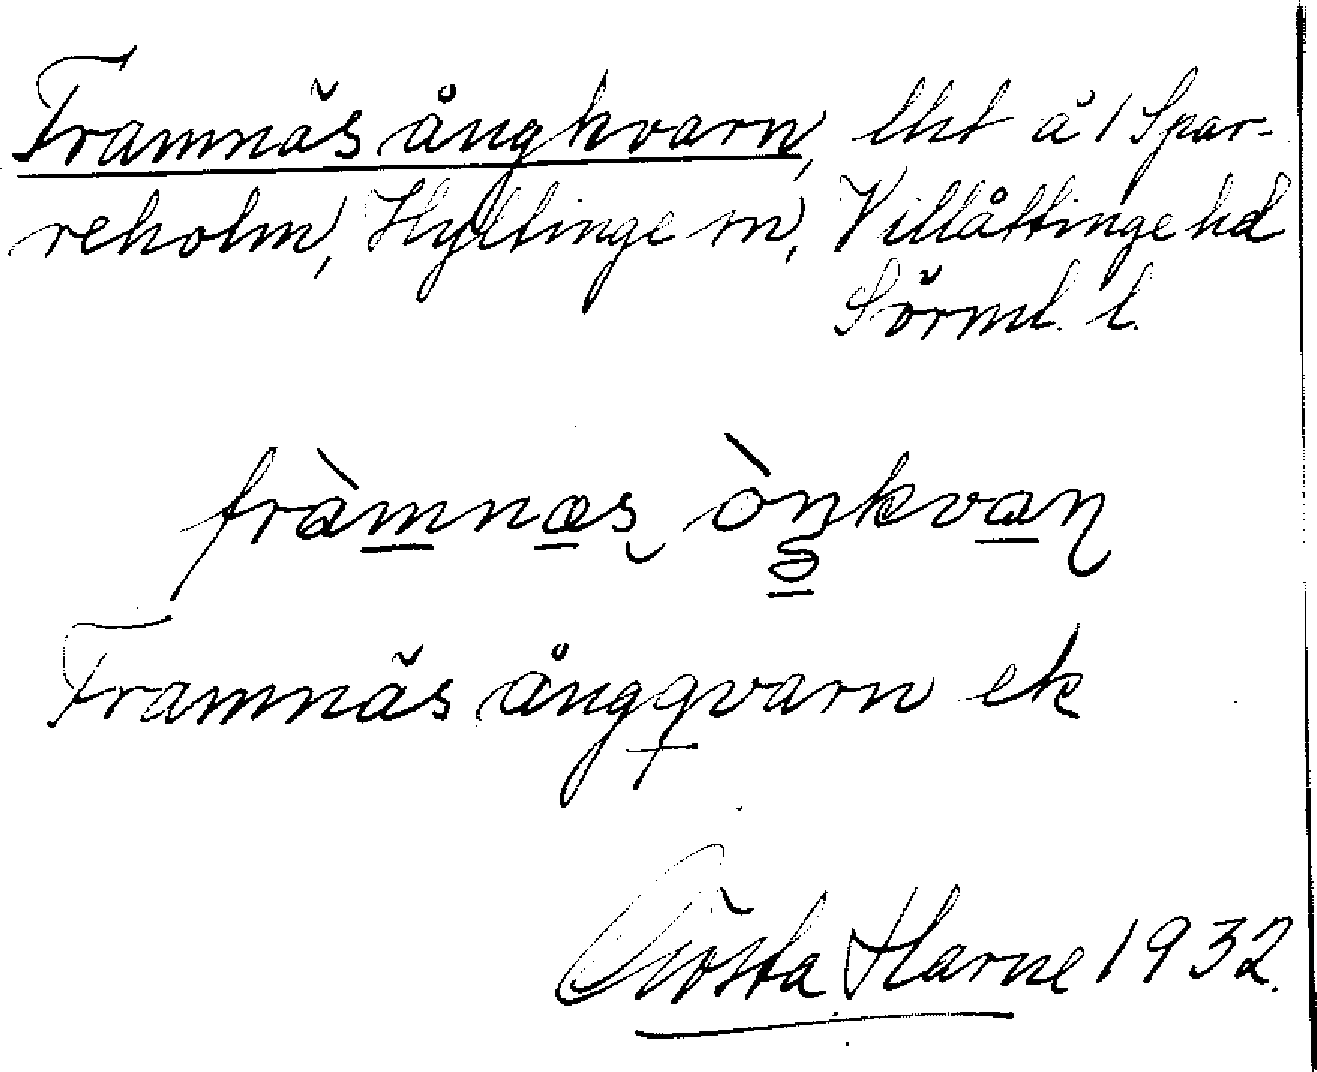 Framnäs ångkvarn, lht å 1 Spar-
reholm, Hyltinge sn, Villåttinge hd
Sörml. l.
fràmnæs ònkvaɳ
Framnäs ångqvarn ek
Gösta Harne 1932.